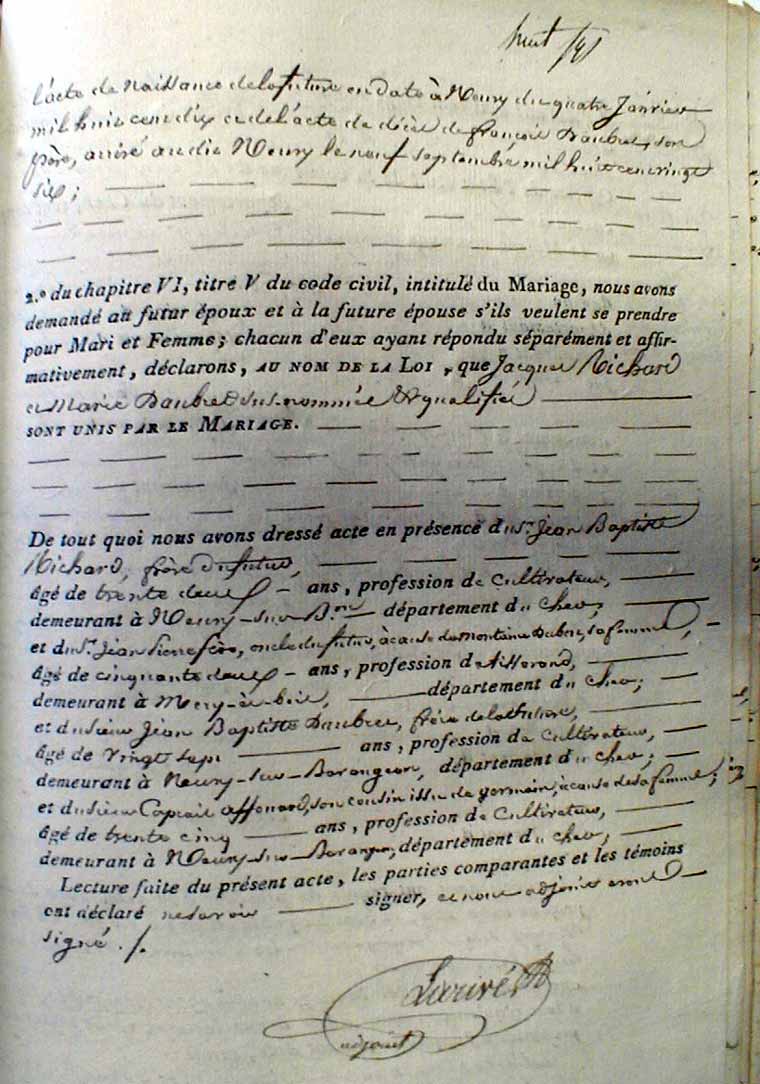 huit
l'acte de Naissance de la future en date à Neuvy du quatre Janvier
mil huit cent dix et de l'acte de décès de françois Daubret, son
père, arrivé au dit Neuvy le neuf septembre mil huit cent vingt
six;
2.º du chapitre VI, titre V du code civil, intitulé du Mariage, nous avons
demandé au futur époux et à la future épouse s'ils veulent se prendre
pour Mari et Femme; chacun d'eux ayant répondu séparément et affir-
mativement, déclarons, AU NOM DE LA LOI, que Jacques Richard
et Marie Daubret sus-nommés & qualifiés
SONT UNIS PAR LE MARIAGE.
De tout quoi nous avons dressé acte en présence du Sr. Jean Baptiste
Richard, frère du futur,
âgé de trente deux - ans, profession de Cultivateur,
demeurant à Neuvy-sur-B.on département du Cher;
et du Sr. Jean, oncle du futur, à cause de sa femme,
âgé de cinquante deux - ans, profession de tisserand,
demeurant à Mery-ès-bois, département du Cher;
et du sieur Jean Baptiste Daubret, frère de la future,
âgé de vingt sept ans, profession de Cultivateur,
demeurant à Neuvy-sur-Barangeon, département du Cher;
et du sieur, son cousin issu de germain, à cause de sa femme;
âgé de trente cinq ans, profession de Cultivateur,
demeurant à Neuvy-sur-Barangeon, département du Cher;
Lecture faite du présent acte, les parties comparantes et les témoins
ont déclaré ne savoir signer, et nous adjoint avons
signé ./.
Larivé
adjoint